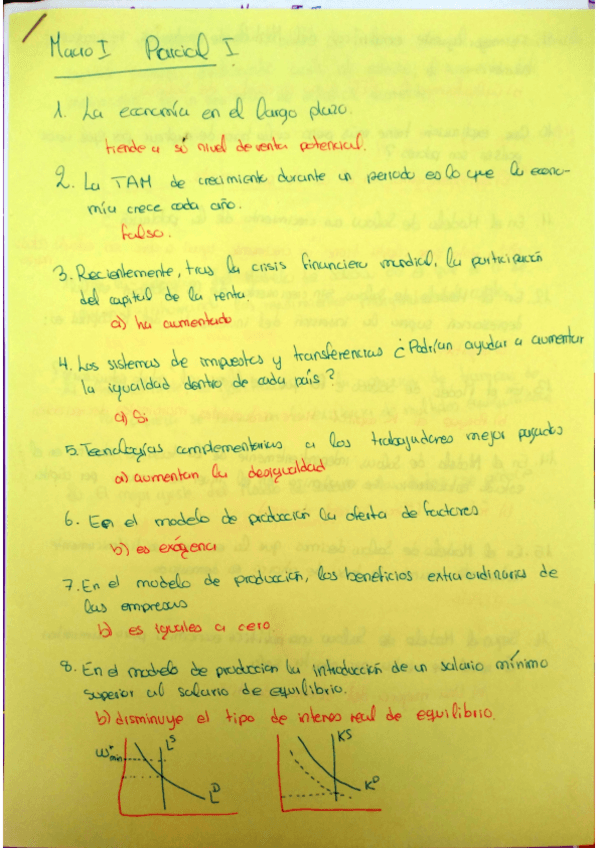 Macro I Parcial I
1. La economía en el largo plazo.
tiende a su nivel de renta potencial.
2. La TAM de crecimiento durante un periodo es lo que la econo-
mía crece cada año.
Falso.
3. Recientemente, tras la crisis financiera mundial, la participación
del capital de la renta.
a) ha aumentado
4. Los sistemas de impuestos y transferencias ¿Podrían ayudar a aumentar
la igualdad dentro de cada país?
a) Si
5. Tecnologías complementarias a los trabajadores mejor pagados
a) aumentan la desigualdad
6. En el modelo de producción la oferta de factores
b) es exógena
7. En el modelo de producción, los beneficios extraordinarios de
las empresas
b) es iguales a cero
8. En el modelo de producción la introducción de un salario mínimo
superior al salario de equilibrio.
b) disminuye el tipo de interes real de equilibrio.
W*min LS LD
KS KD